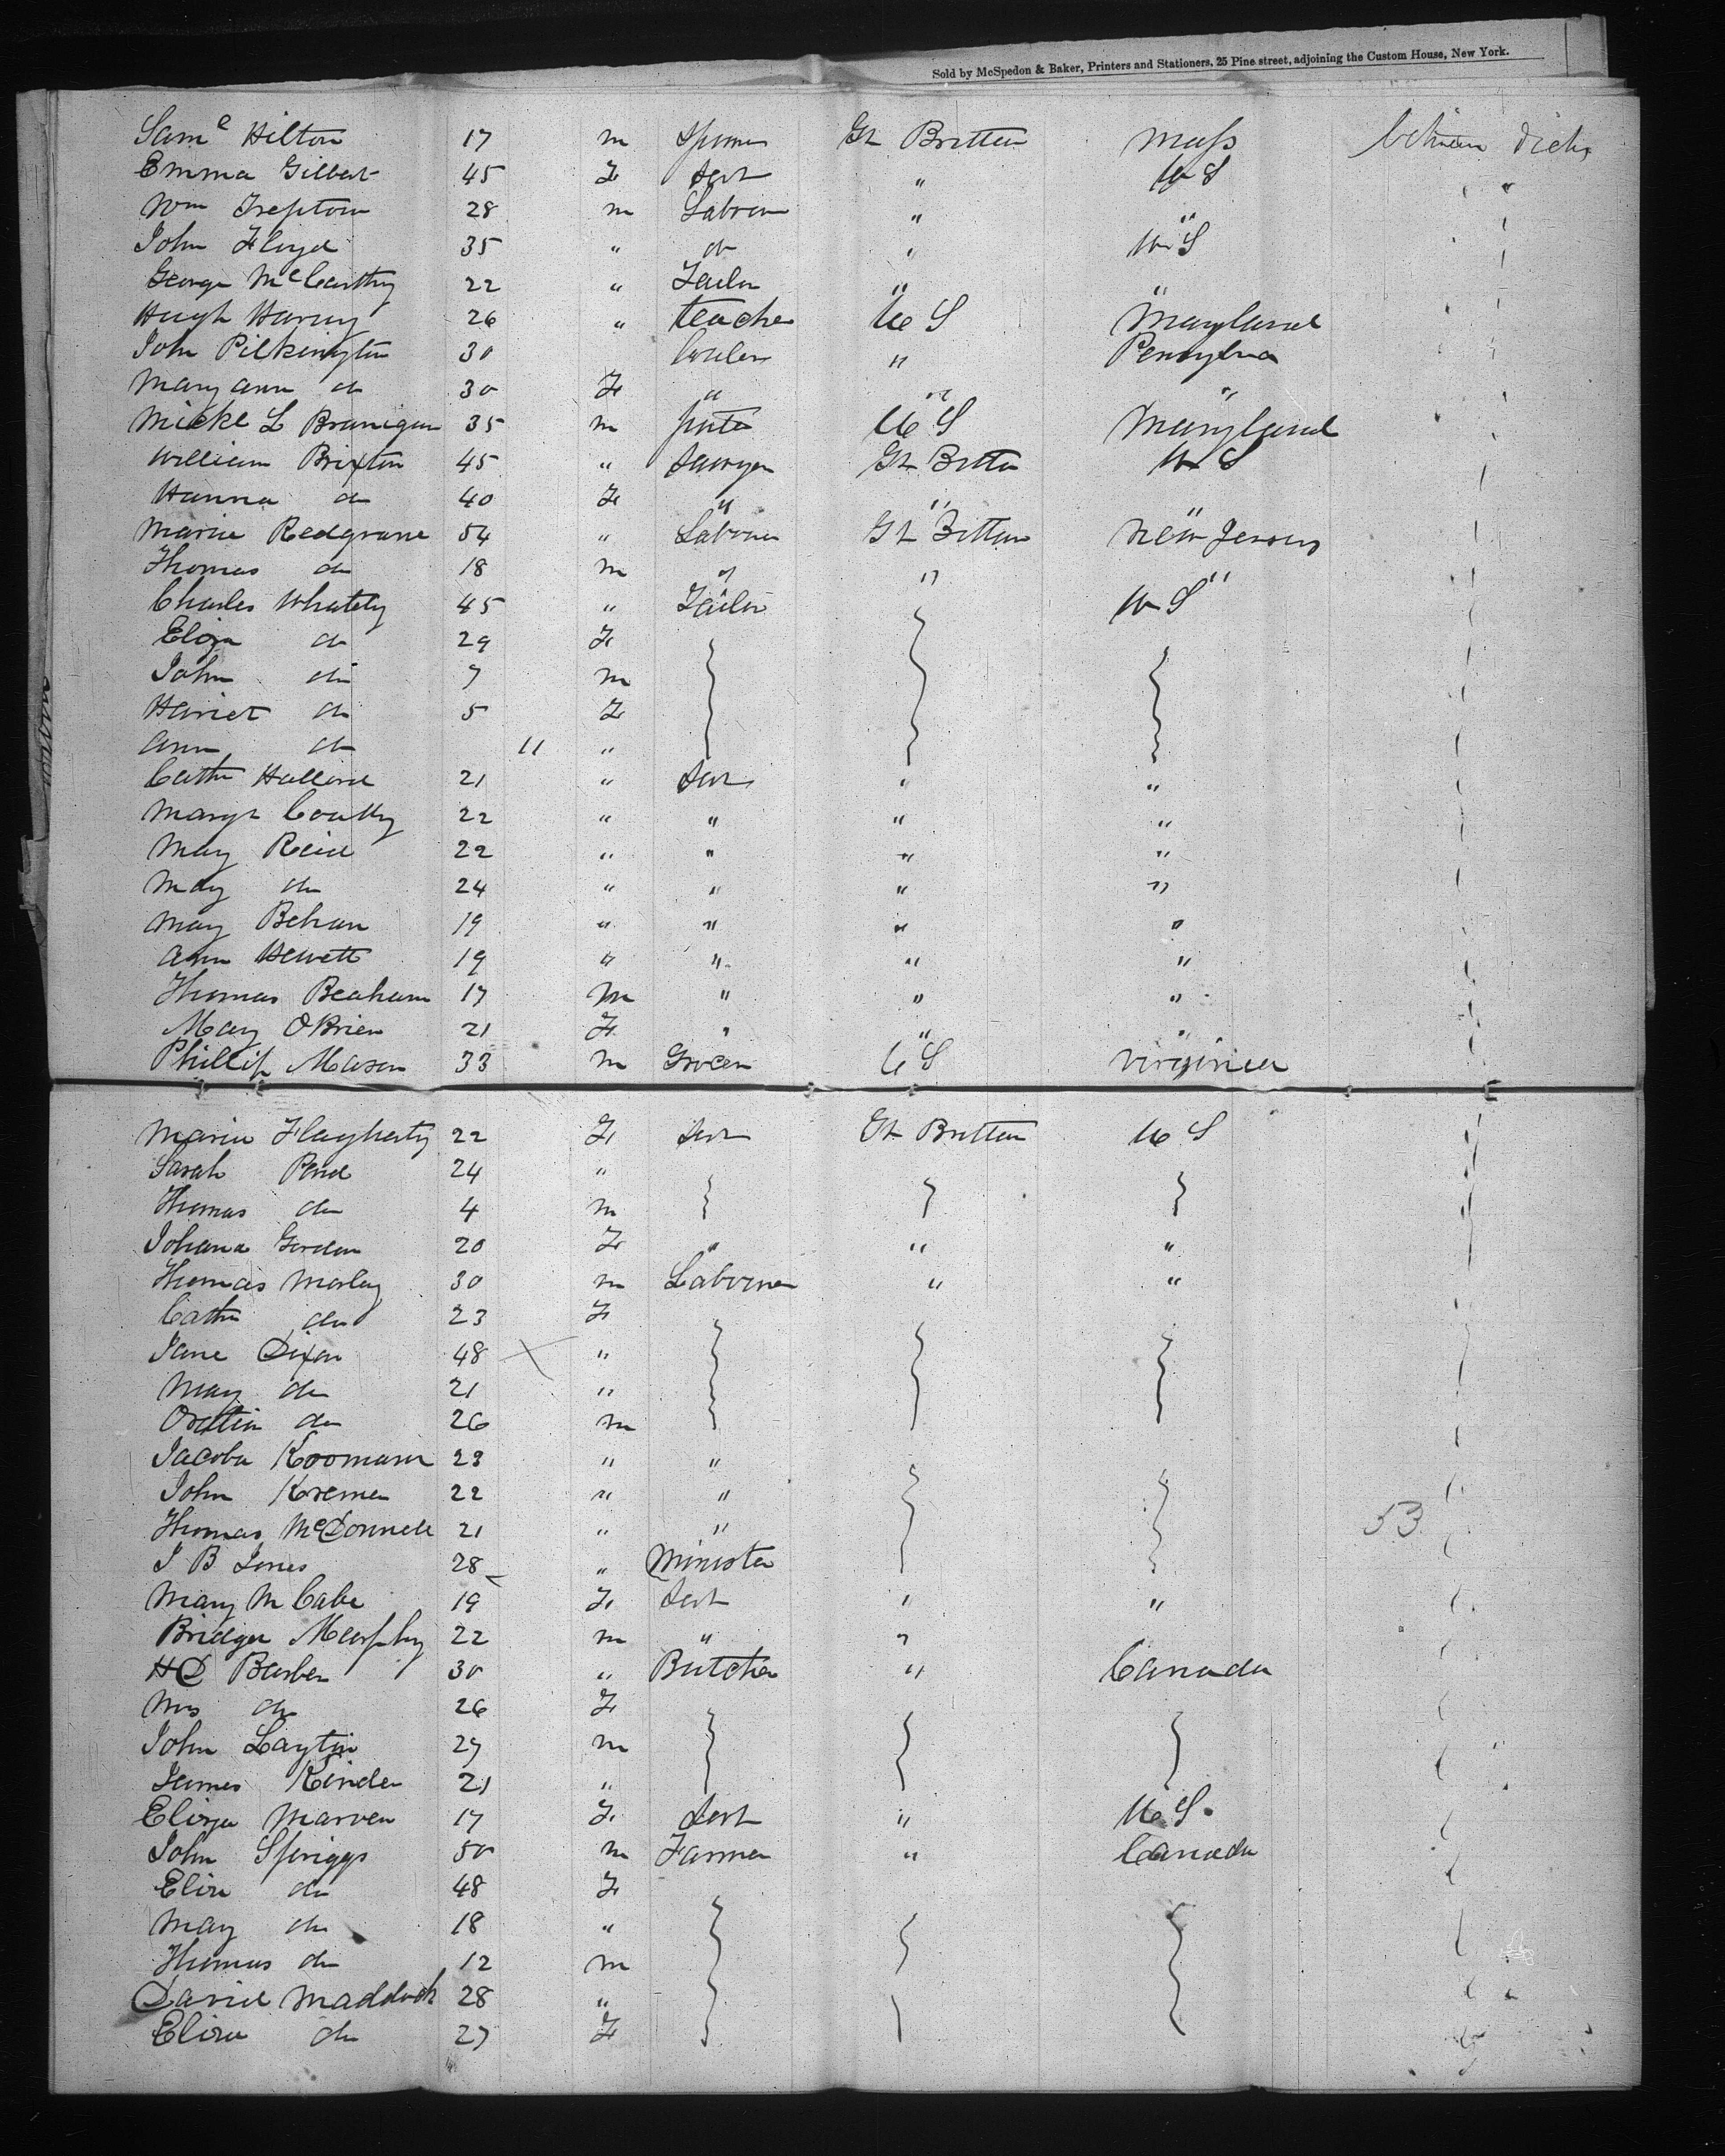 Sold by McSpedon & Baker, Printers and Stationers, 25 Pine street, adjoining the Custom House, New York.
Saml Hilton 17 m Gt Britten Mass between decks
Emma Gilbert 45 F Sert " U S "
Wm 28 m Labourer " "
John Floyd 35 " do " U S
George McCarthy 22 " Tailor " "
Hugh 26 " teacher U S Maryland
John Pilkington 30 "
Mary ann do 30 F " " "
Michl L Branigan 35 m U S Maryland
William Brixton 45 " Sawyer Gt Britten U S
Hanna do 40 F " " "
Maria Redgrave 54 " Labourer Gt Britten New Jersey
Thomas do 18 m " " "
Charles Whately 45 " Tailor U S
Eliza do 29 F
John do 7 m
Hariet do 5 F
Ann do 11 "
Cathe 21 " Sert " "
Margt 22 " " " "
Mary Reid 22 " " " "
Mary do 24 " " " "
Mary Behan 19 " " " "
Ann Hewett 19 " " " "
Thomas Beaham 17 m " " "
Mary OBrien 21 F " " "
Phillip Mason 33 m Grocer U S Virginia
Maria Flagherty 22 F Sert Gt Britten U S
Sarah 24 "
Thomas do 4 m
Johana Gordon 20 F " " "
Thomas Morley 30 m Labourer " "
Cathe do 23 F
Jane Dixon 48 "
Mary do 21 "
do 26 m
Jacoba Koomann 23 " "
John Kremer 22 " "
Thomas McDonnell 21 " " 53
J B Jones 28 " Minister
Mary McCabe 19 F Sert " "
Bridget Murphy 22 m " "
H D Barber 30 " Butcher " Canada
Mrs do 26 F
John Laytin 27 m
James Kinder 21 "
Eliza Marven 17 F Sert " U S
John Spriggs 50 m Farmer " Canada
Eliza do 48 F
Mary do 18 "
Thomas do 12 m
David Maddock 28 "
Eliza do 27 F